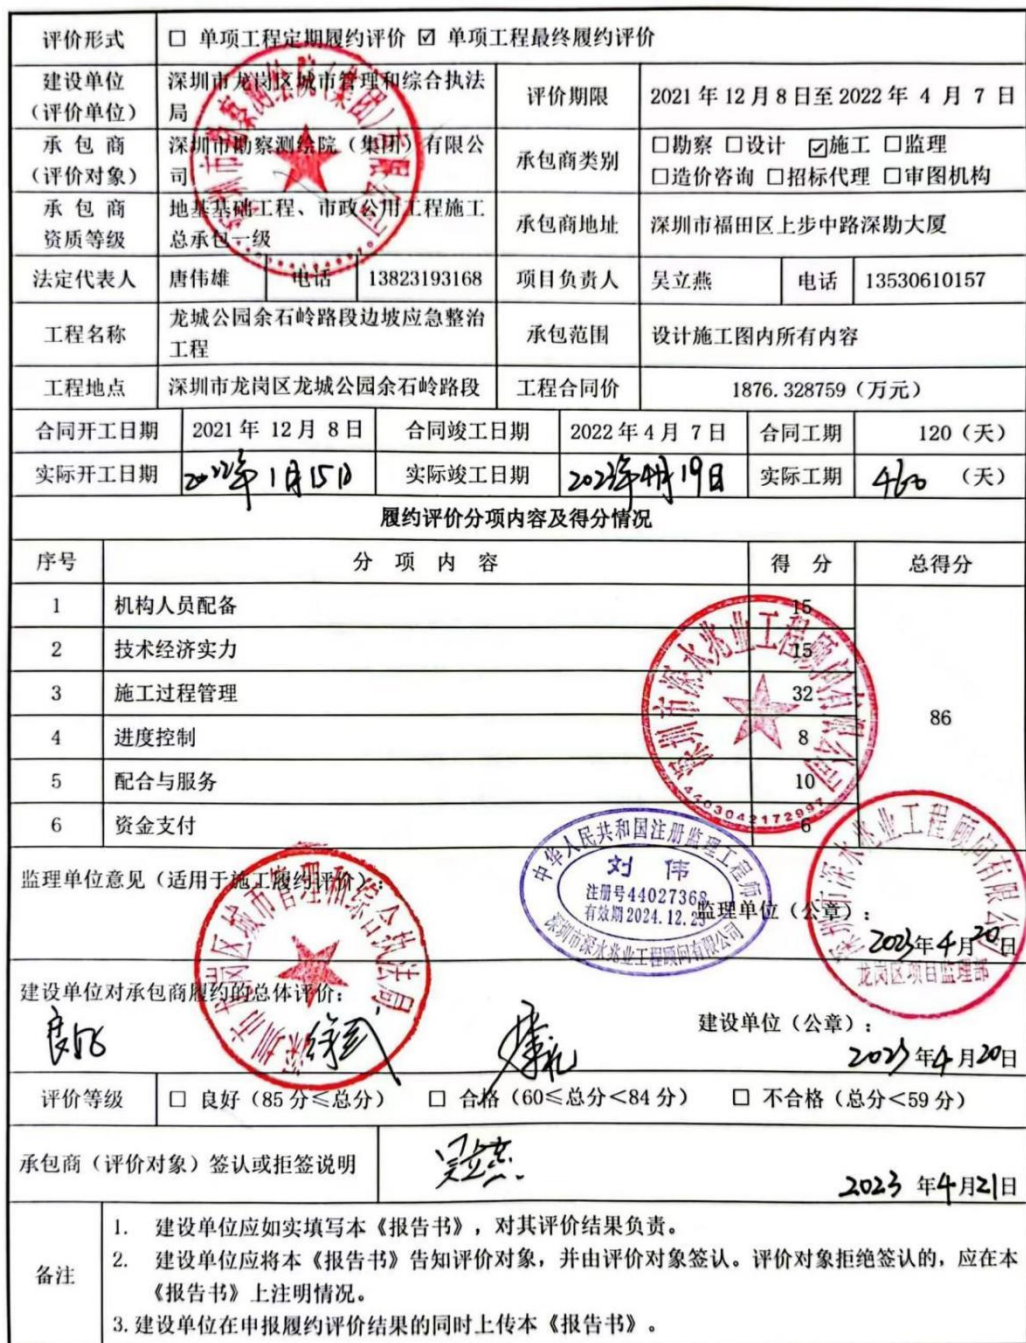 评价形式 □ 单项工程定期履约评价 ☑ 单项工程最终履约评价
建设单位
(评价单位)
深圳市龙岗区城市管理和综合执法
局
评价期限 2021 年 12 月 8 日至 2022 年 4 月 7 日
承 包 商
(评价对象)
深圳市勘察测绘院(集团)有限公
司
承包商类别
□勘察 □设计 ☑施工 □监理
□造价咨询 □招标代理 □审图机构
承 包 商
资质等级
地基基础工程、市政公用工程施工
总承包一级
承包商地址 深圳市福田区上步中路深勘大厦
法定代表人 唐伟雄 电话 13823193168 项目负责人 吴立燕 电话 13530610157
工程名称
龙城公园余石岭路段边坡应急整治
工程
承包范围 设计施工图内所有内容
工程地点 深圳市龙岗区龙城公园余石岭路段 工程合同价 1876.328759(万元)
合同开工日期 2021 年 12 月 8 日 合同竣工日期 2022 年 4 月 7 日 合同工期 120(天)
实际开工日期 2022年 1月15日 实际竣工日期 2023年4月19日 实际工期 460 (天)
履约评价分项内容及得分情况
序号 分 项 内 容 得 分 总得分
1 机构人员配备 15
2 技术经济实力 15
3 施工过程管理 32
4 进度控制 8
5 配合与服务 10
6 资金支付 6
86
深圳市勘察测绘院(集团)有限公司
深圳市深水兆业工程顾问有限公司
4403042172997
监理单位意见(适用于施工履约评价):
中华人民共和国注册监理工程师
刘 伟
注册号44027368
有效期2024.12.23
深圳市深水兆业工程顾问有限公司
监理单位(公章):
2023年4月20日
深圳市深水兆业工程顾问有限公司
龙岗区项目监理部
深圳市龙岗区城市管理和综合执法局
建设单位对承包商履约的总体评价:
良好
建设单位(公章):
2023年4月20日
评价等级 □ 良好(85 分≤总分) □ 合格(60≤总分<84 分) □ 不合格(总分<59 分)
承包商(评价对象)签认或拒签说明 吴立燕 2023 年4月21日
备注
1. 建设单位应如实填写本《报告书》,对其评价结果负责。
2. 建设单位应将本《报告书》告知评价对象,并由评价对象签认。评价对象拒绝签认的,应在本
《报告书》上注明情况。
3.建设单位在申报履约评价结果的同时上传本《报告书》。